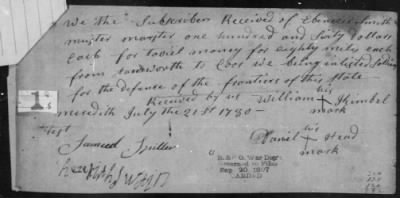 We the Subscribers Received of Ebenezer Smith
muster master one hundred and Sixty Dollars
Each for travil money for eighty miles each
from Sandworth to Coos we being inlisted
for the defence of the frontiers of this State
Received by us William his Kimbel
mark
meredith July the 21st 1780-
Test
Samuel
Daniel his Head
mark
R. & P. O. War Dept.
Returned to Files
Sep 20 1897
CARDED
1